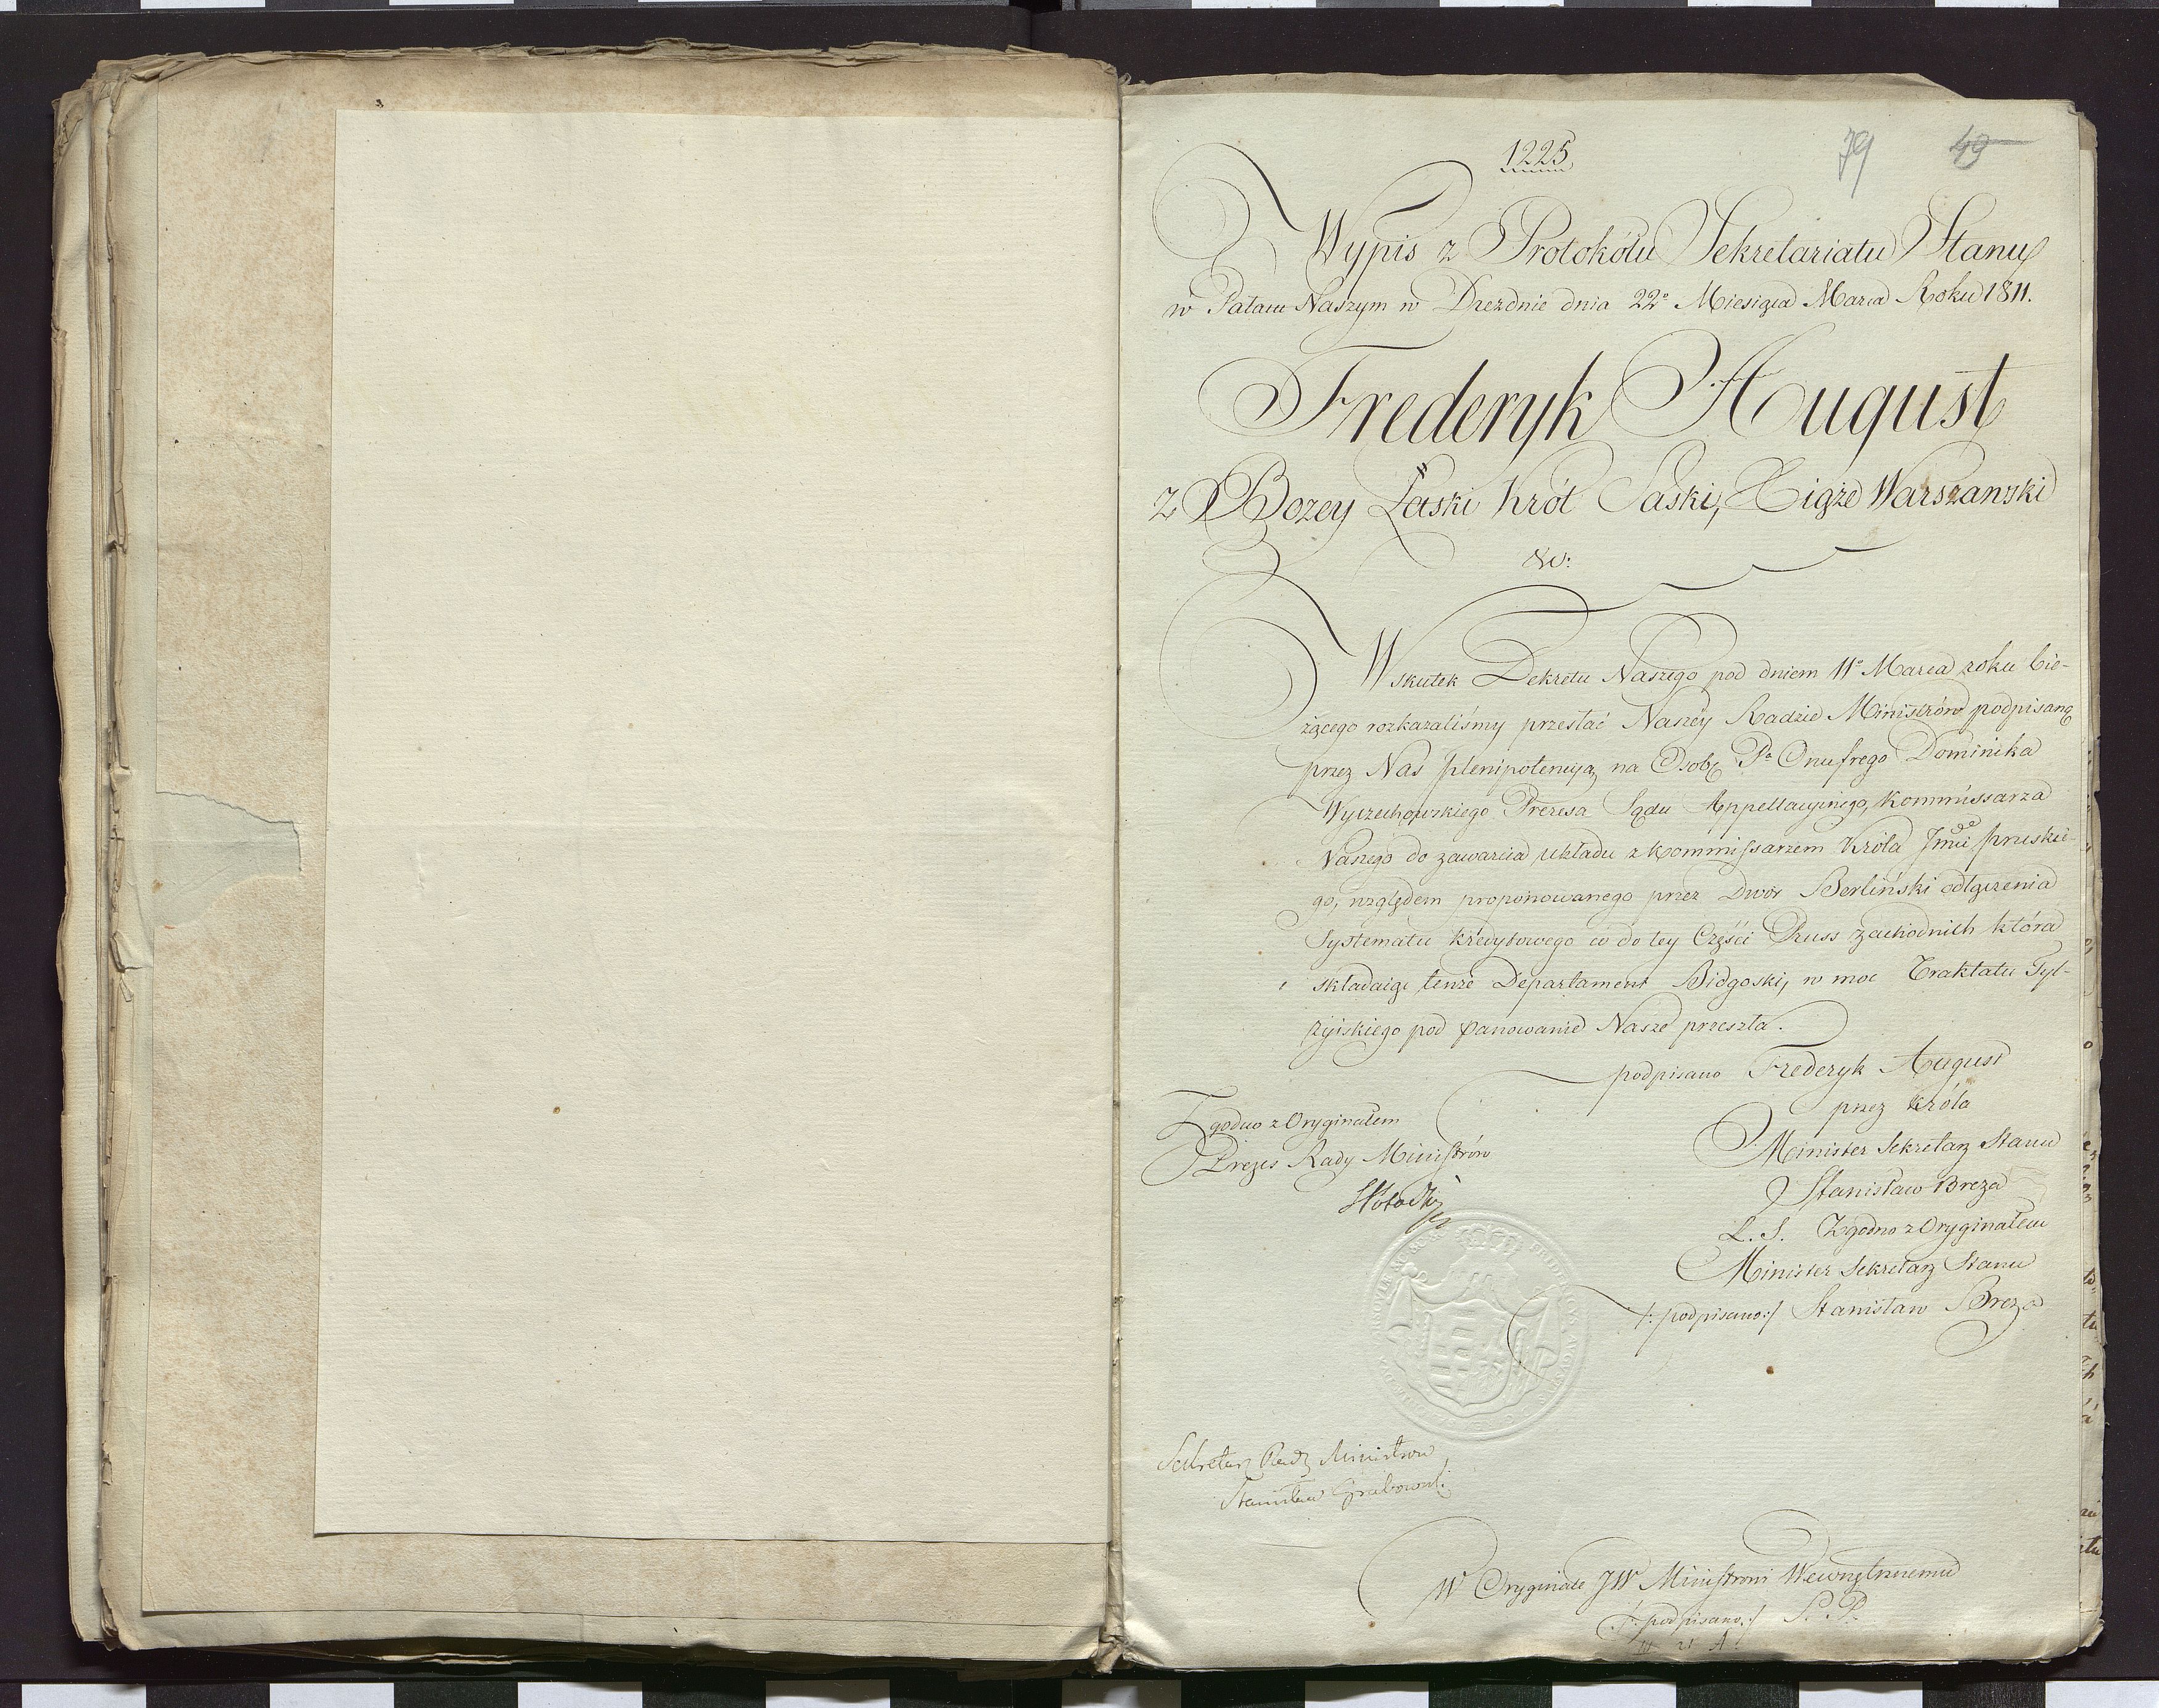 1225.
79 49
Wypis z Protokółu Sekretariatu Stanu
w Pałacu Naszym w Dreźnie dnia 22º Miesiąca Marca Roku 1811.
Frederyk August
z Bożey Łaski Król Saski, Xiąże Warszawski
&c:
W skutek Dekretu Naszego pod dniem 11º Marca roku bie-
żącego rozkazaliśmy przesłać Naszey Radzie Ministrów podpisaną
przez Nas plenipotencyą na Osobę Pª Onufrego Dominika
Wyczechowskiego Prezesa Sądu Appellacyinego, Kommissarza
Naszego do zawarcia układu z Kommissarzem Króla Jmci pruskie-
go, względem proponowanego przez Dwór Berliński odłączenia
Systematu kredytowego co do tey Części Pruss zachodnich która
składaiąc tenże Departament Bidgoski, w moc Traktatu Tyl-
zyiskiego pod panowanie Nasze przeszła.
podpisano Frederyk August
przez Króla
Minister Sekretarz Stanu
Stanisław Breza
L. S. Zgodno z Oryginałem
Minister Sekretarz Stanu
/: podpisano:/ Stanisław Breza
Zgodno z Oryginałem
Prezes Rady Ministrów
Sekretarz Rady Ministrow
Stanisław Grabowski
W Oryginale JW Ministrowi Wewnętrznemu
/: podpisano:/ S. P.